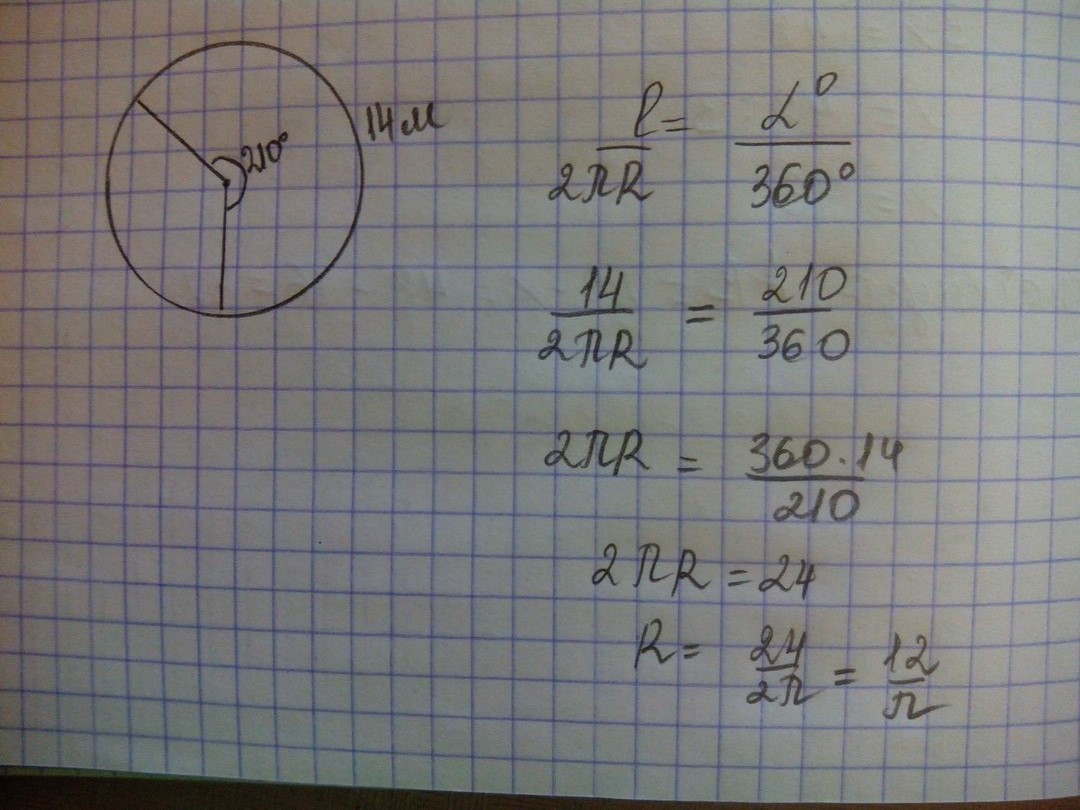 210°
14 м
l/2πR = α°/360°
14/2πR = 210/360
2πR = 360·14/210
2πR = 24
R = 24/2π = 12/π